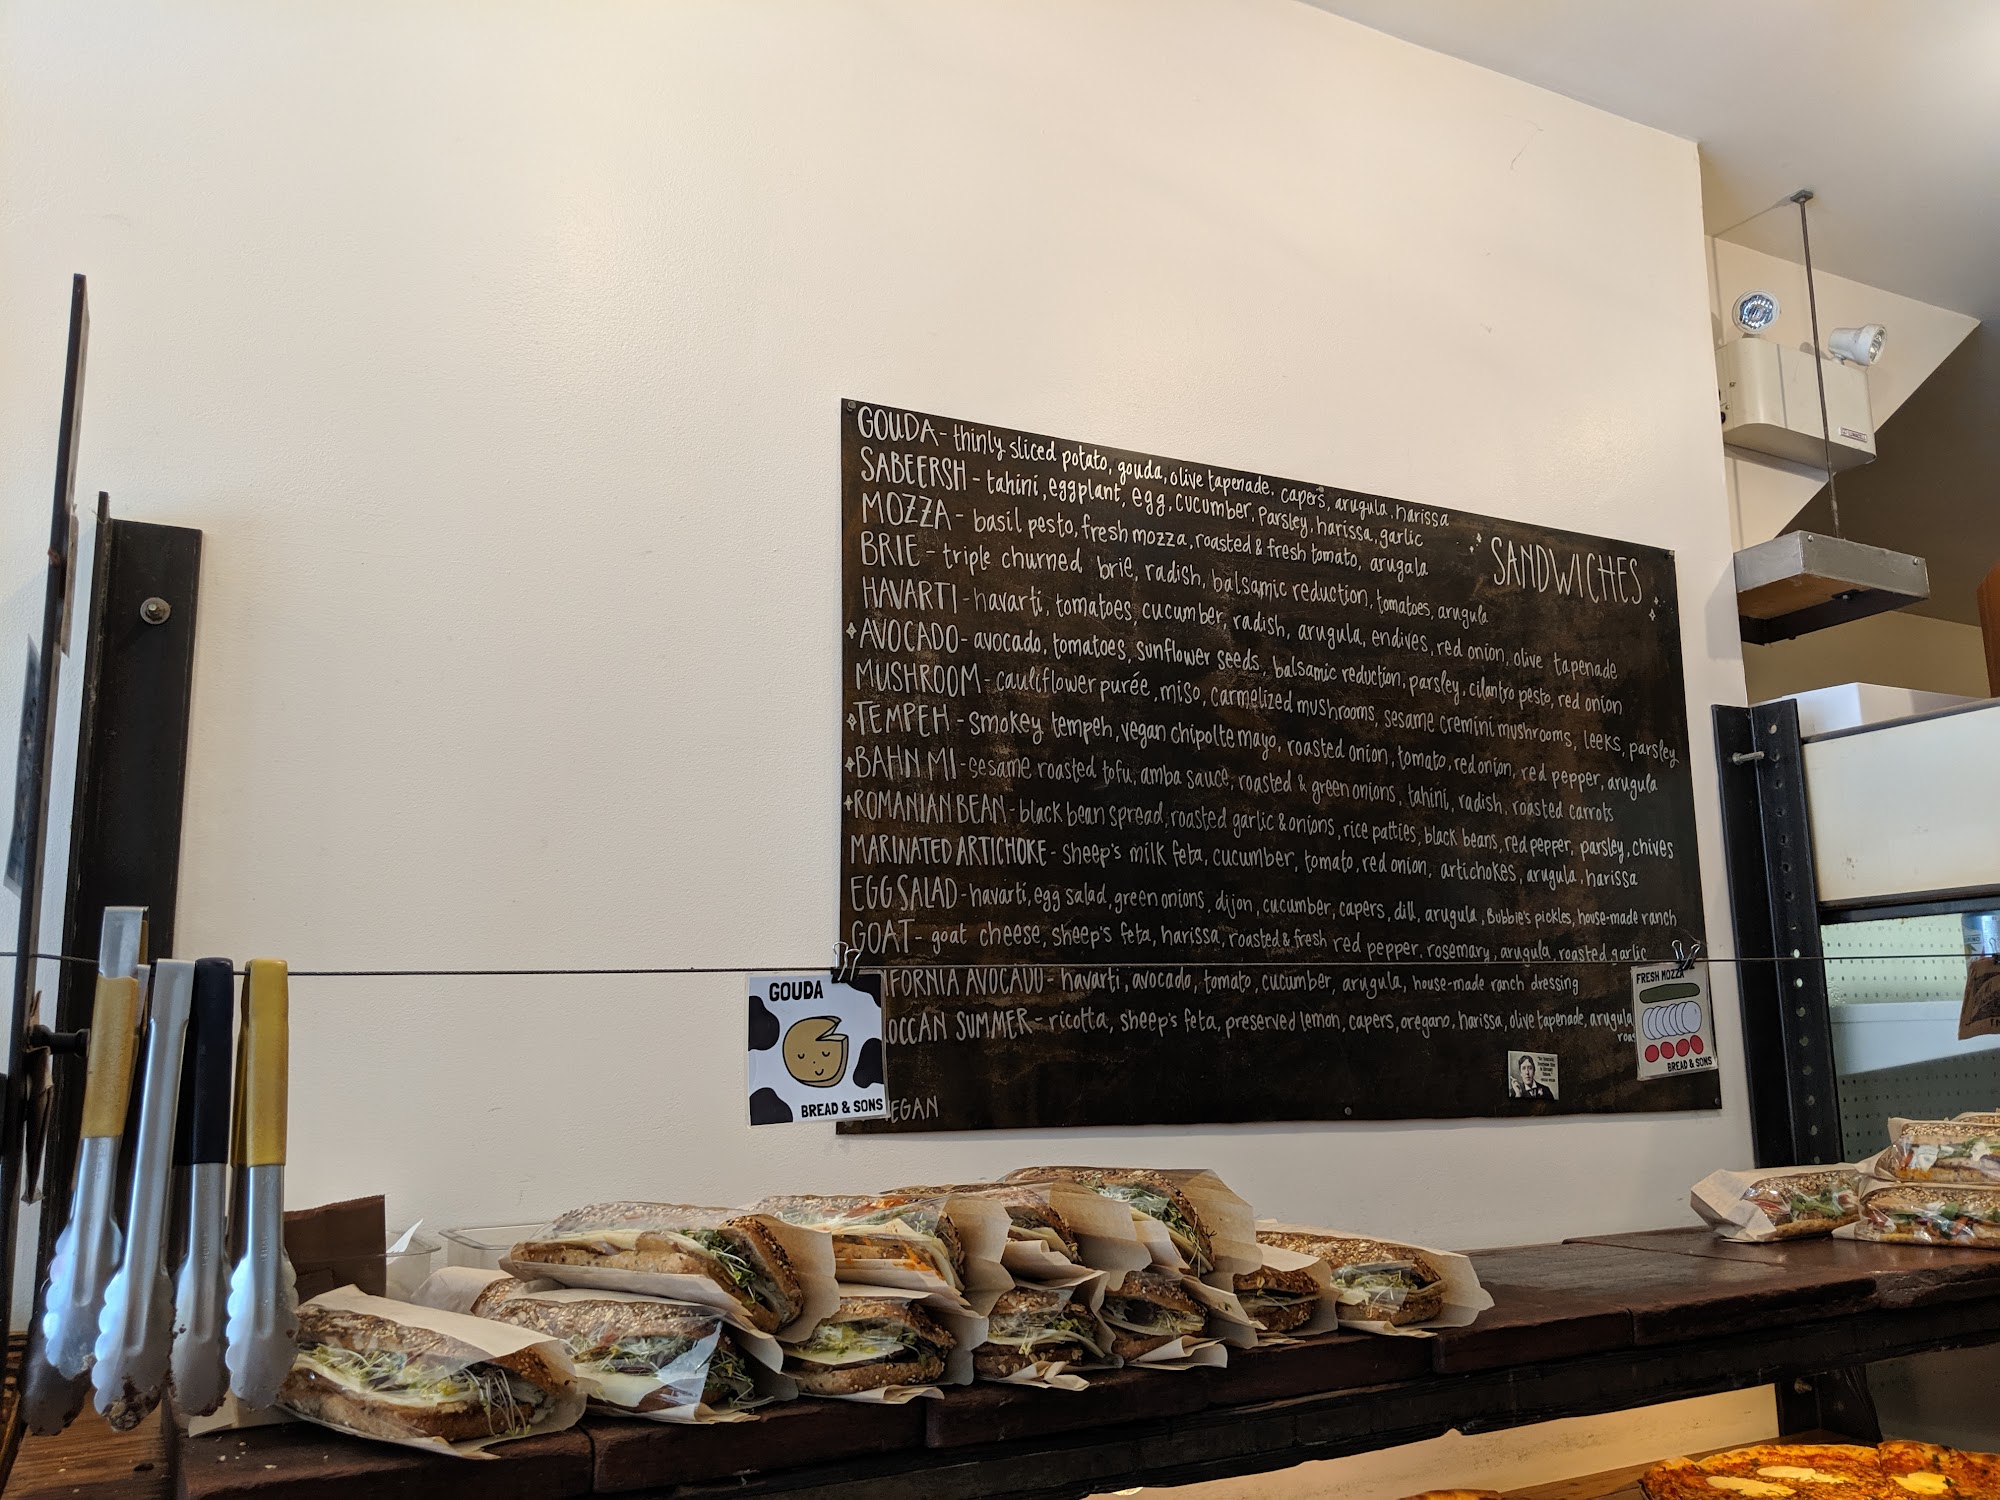 GOUDA - thinly sliced potato, gouda, olive tapenade, capers, arugula, harissa
SABEERSH - tahini, eggplant, egg, cucumber, parsley, harissa, garlic
MOZZA - basil pesto, fresh mozza, roasted & fresh tomato, arugala
BRIE - triple churned brie, radish, balsamic reduction, tomatoes, arugula
SANDWICHES
HAVARTI - havarti, tomatoes, cucumber, radish, arugula, endives, red onion, olive tapenade
AVOCADO - avocado, tomatoes, sunflower seeds, balsamic reduction, parsley, cilantro pesto, red onion
MUSHROOM - cauliflower purée, miso, carmelized mushrooms, sesame cremini mushrooms, leeks, parsley
TEMPEH - smokey tempeh, vegan chipolte mayo, roasted onion, tomato, red onion, red pepper, arugula
BAHN MI - sesame roasted tofu, amba sauce, roasted & green onions, tahini, radish, roasted carrots
ROMANIAN BEAN - black bean spread, roasted garlic & onions, rice patties, black beans, red pepper, parsley, chives
MARINATED ARTICHOKE - sheep's milk feta, cucumber, tomato, red onion, artichokes, arugula, harissa
EGG SALAD - havarti, egg salad, green onions, dijon, cucumber, capers, dill, arugula, Bubbie's pickles, house-made ranch
GOAT - goat cheese, sheep's feta, harissa, roasted & fresh red pepper, rosemary, arugula, roasted garlic
IFORNIA AVOCADO - havarti, avocado, tomato, cucumber, arugula, house-made ranch dressing
OCCAN SUMMER - ricotta, sheep's feta, preserved lemon, capers, oregano, harissa, olive tapenade, arugula
roas
EGAN
GOUDA
BREAD & SONS
FRESH MOZZA
BREAD & SONS